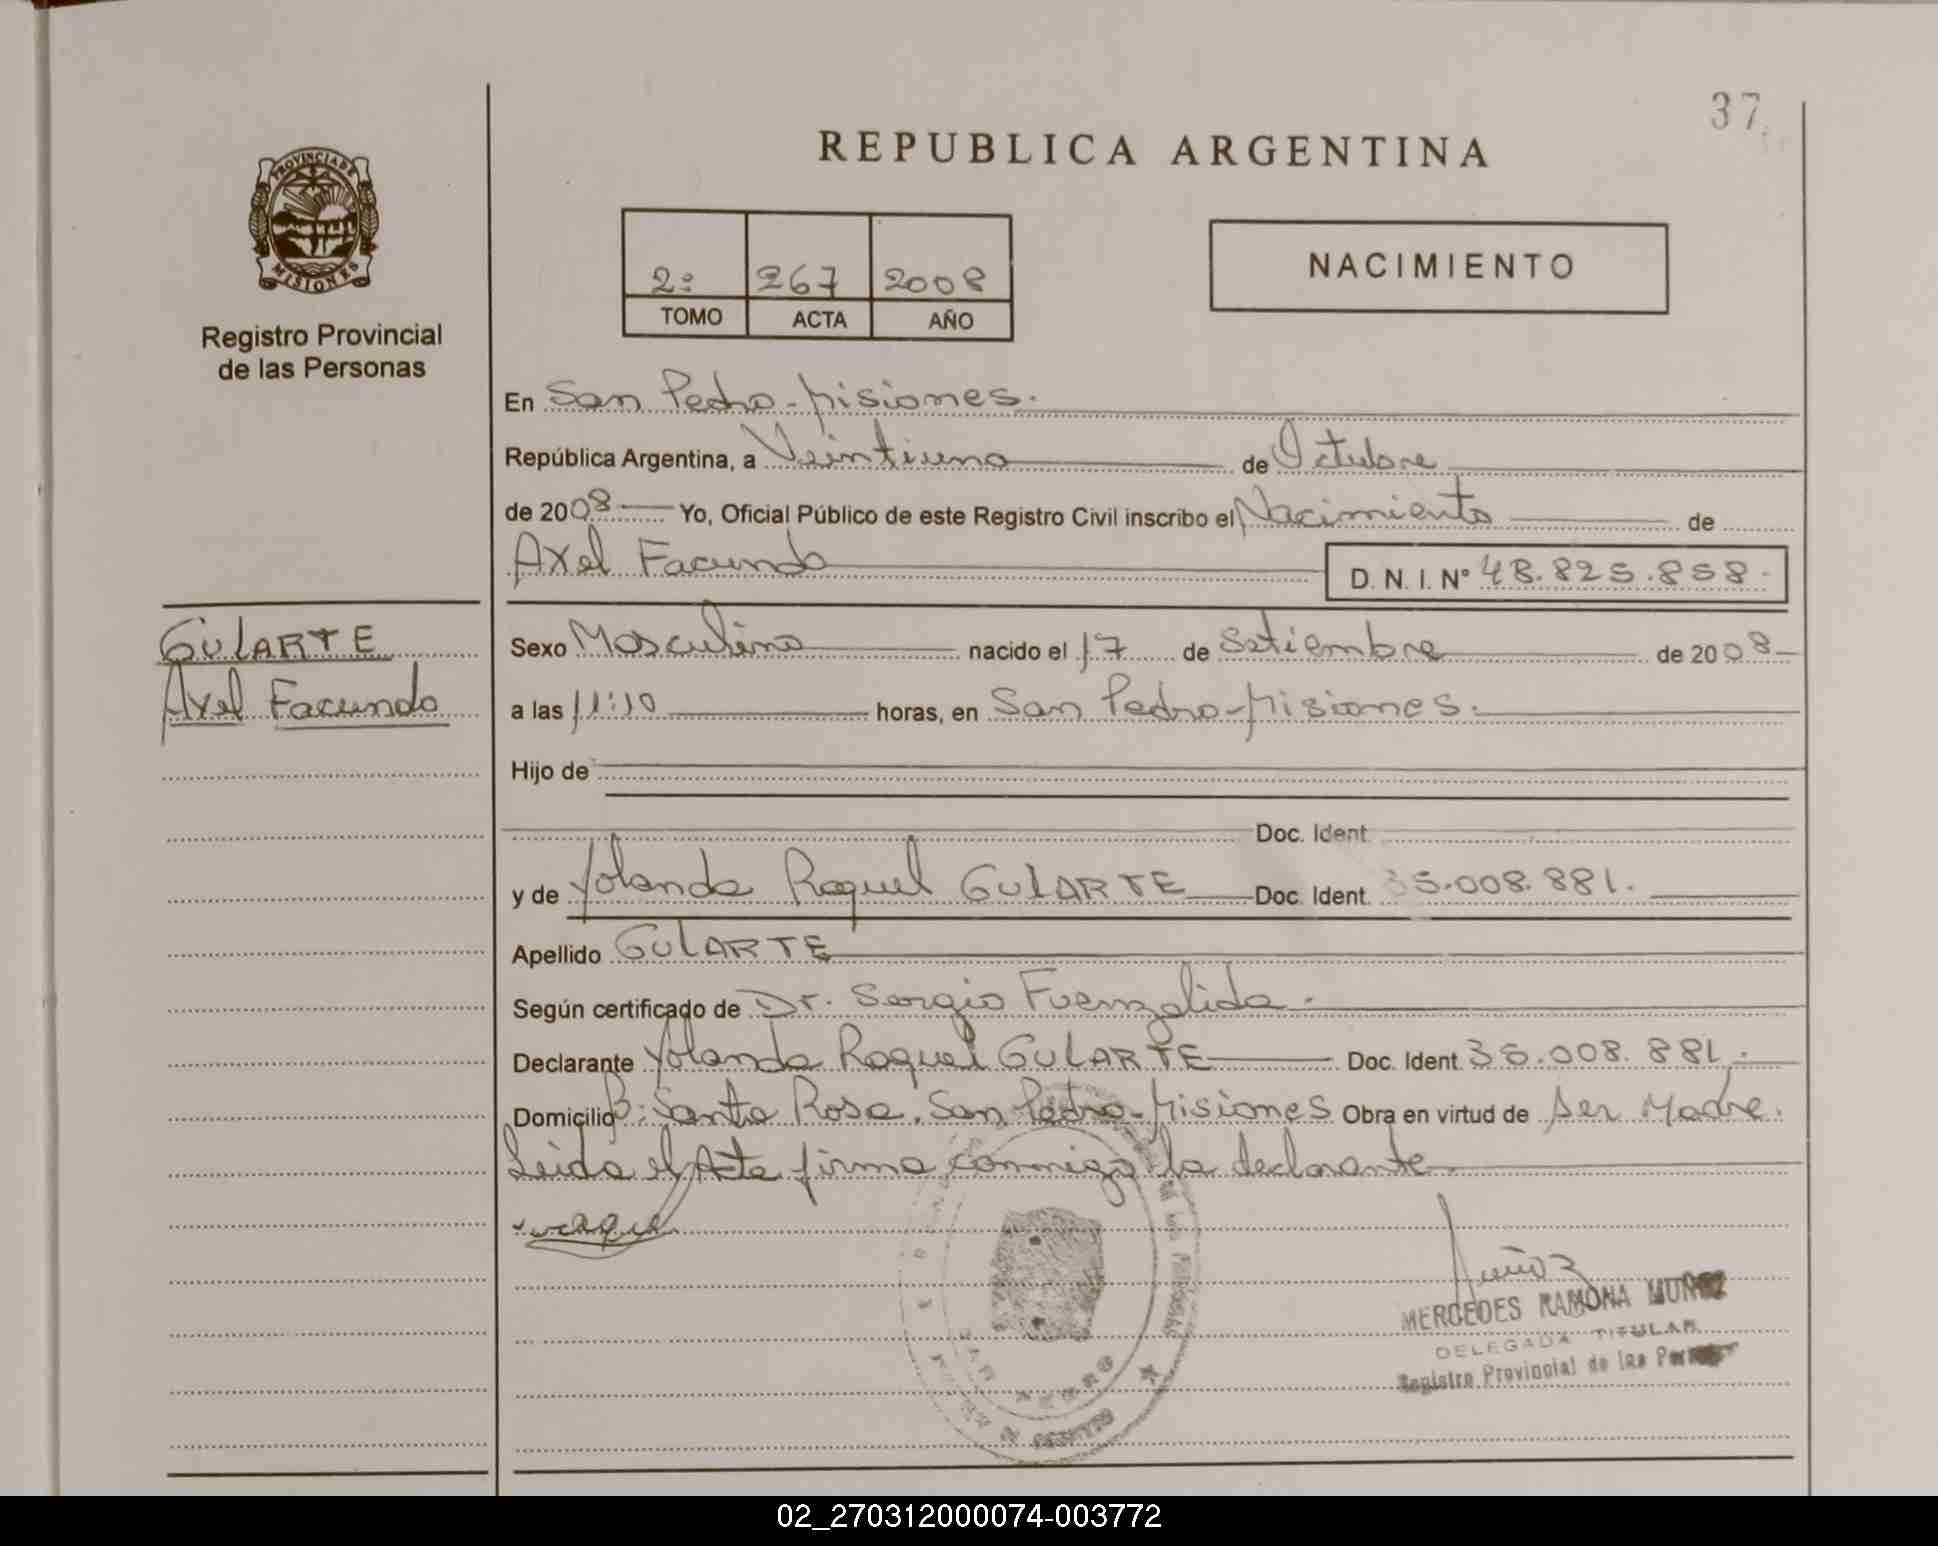 37
PROVINCIA DE
MISIONES
Registro Provincial
de las Personas
REPUBLICA ARGENTINA
2º 267 2008
TOMO ACTA AÑO
NACIMIENTO
En San Pedro - Misiones.
República Argentina, a Veintiuno de Octubre
de 2008 Yo, Oficial Público de este Registro Civil inscribo el Nacimiento de
Axel Facundo D. N. I. Nº 48.825.858.
GULARTE
Axel Facundo
Sexo Masculino nacido el 17 de Setiembre de 2008
a las 11:10 horas, en San Pedro - Misiones.
Hijo de
Doc. Ident.
y de Yolanda Raquel GULARTE Doc. Ident. 35.008.881.
Apellido GULARTE
Según certificado de Dr. Sergio Fuenzalida.
Declarante Yolanda Raquel GULARTE Doc. Ident. 35.008.881.
Domicilio Bº: Santa Rosa. San Pedro - Misiones Obra en virtud de ser Madre.
Leida el Acta firma conmigo la declarante
Muñoz
MERCEDES RAMONA MUÑOZ
DELEGADA TITULAR
Registro Provincial de las
02_270312000074-003772